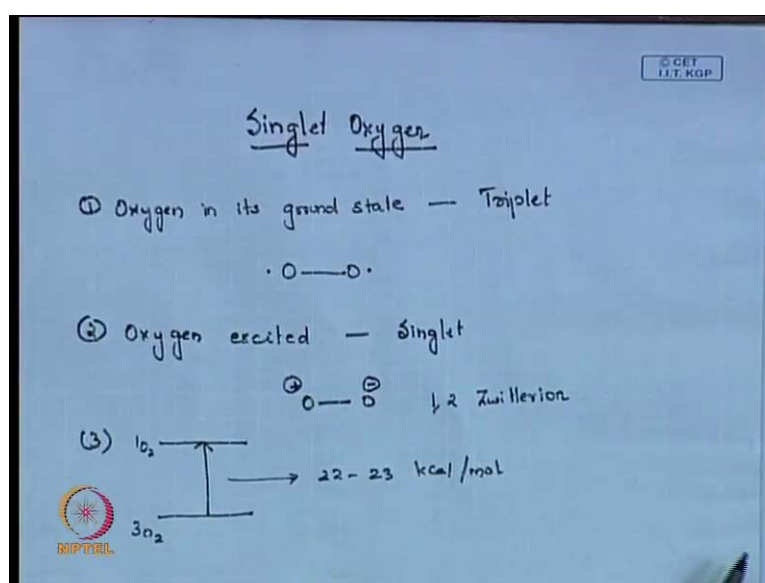 © CET
I.I.T. KGP
Singlet Oxygen
① Oxygen in its ground state — Triplet
· O—O ·
② Oxygen excited — Singlet
⊕ ⊖
O—O 1,2 Zwitterion
(3) 1O₂
→ 22-23 kcal/mol
3O₂
NPTEL